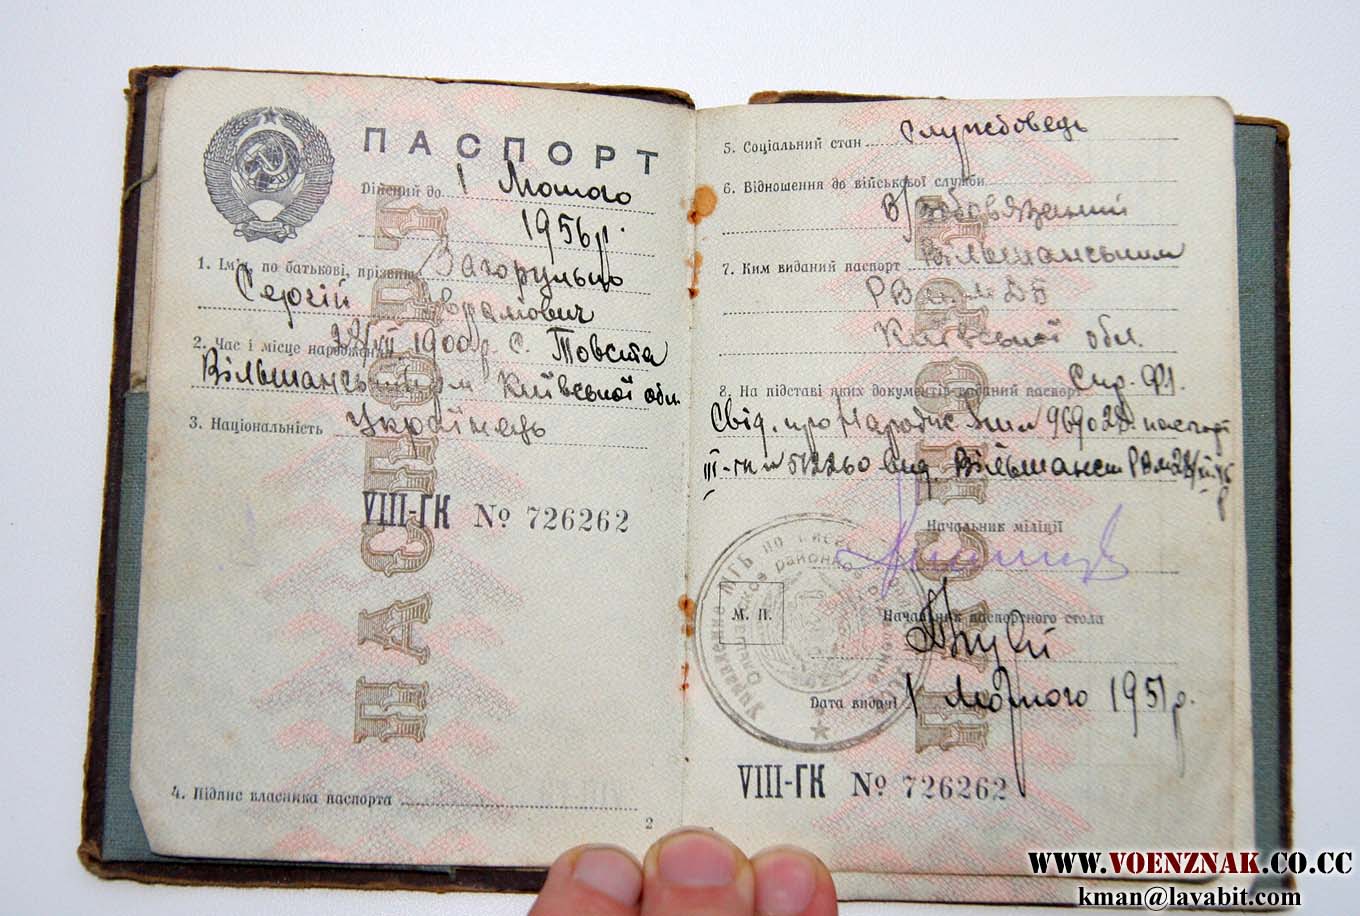 ПАСПОРТ
Дійсний до 1 Лютого
1956 р.
1. Ім'я, по батькові, прізвище Загорулько
Сергій Аврамович
2. Час і місце народження 1900 р. с. Товста
Вільшанський Київської обл.
3. Національність Українець
VIII-ГК № 726262
4. Підпис власника паспорта
2
5. Соціальний стан Службовець
6. Відношення до військової служби
В/зобов'язаний
7. Ким виданий паспорт Вільшанським
РВ
Київської обл.
8. На підставі яких документів виданий паспорт
Свід. про 
III-ГК № 512260 вид. Вільшанськ
Начальник міліції
М. П.
Начальник паспортного стола
Дата видачі 1 Лютого 1951 р.
VIII-ГК № 726262
WWW.VOENZNAK.CO.CC
kman@lavabit.com